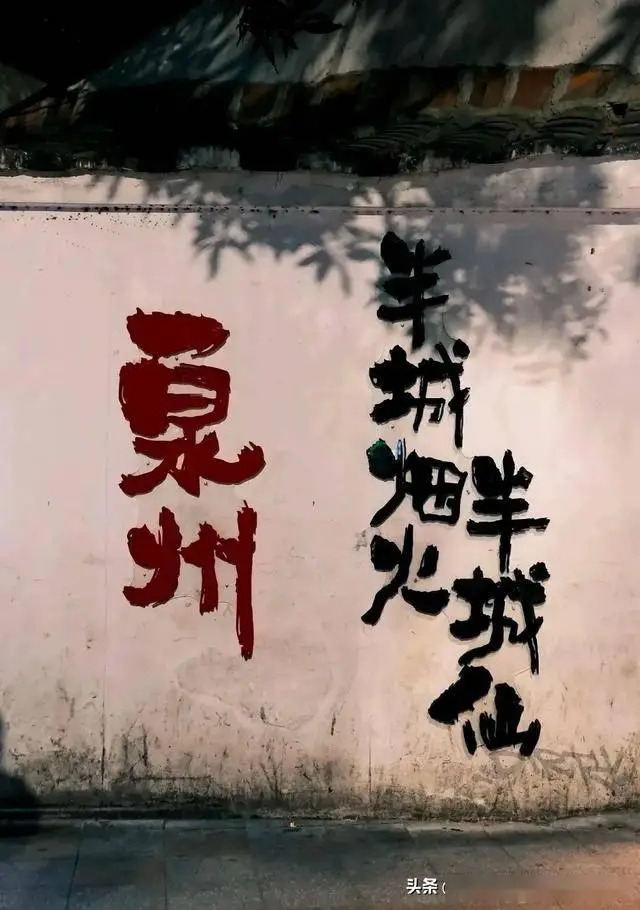 泉州
半城烟火
半城仙
头条(